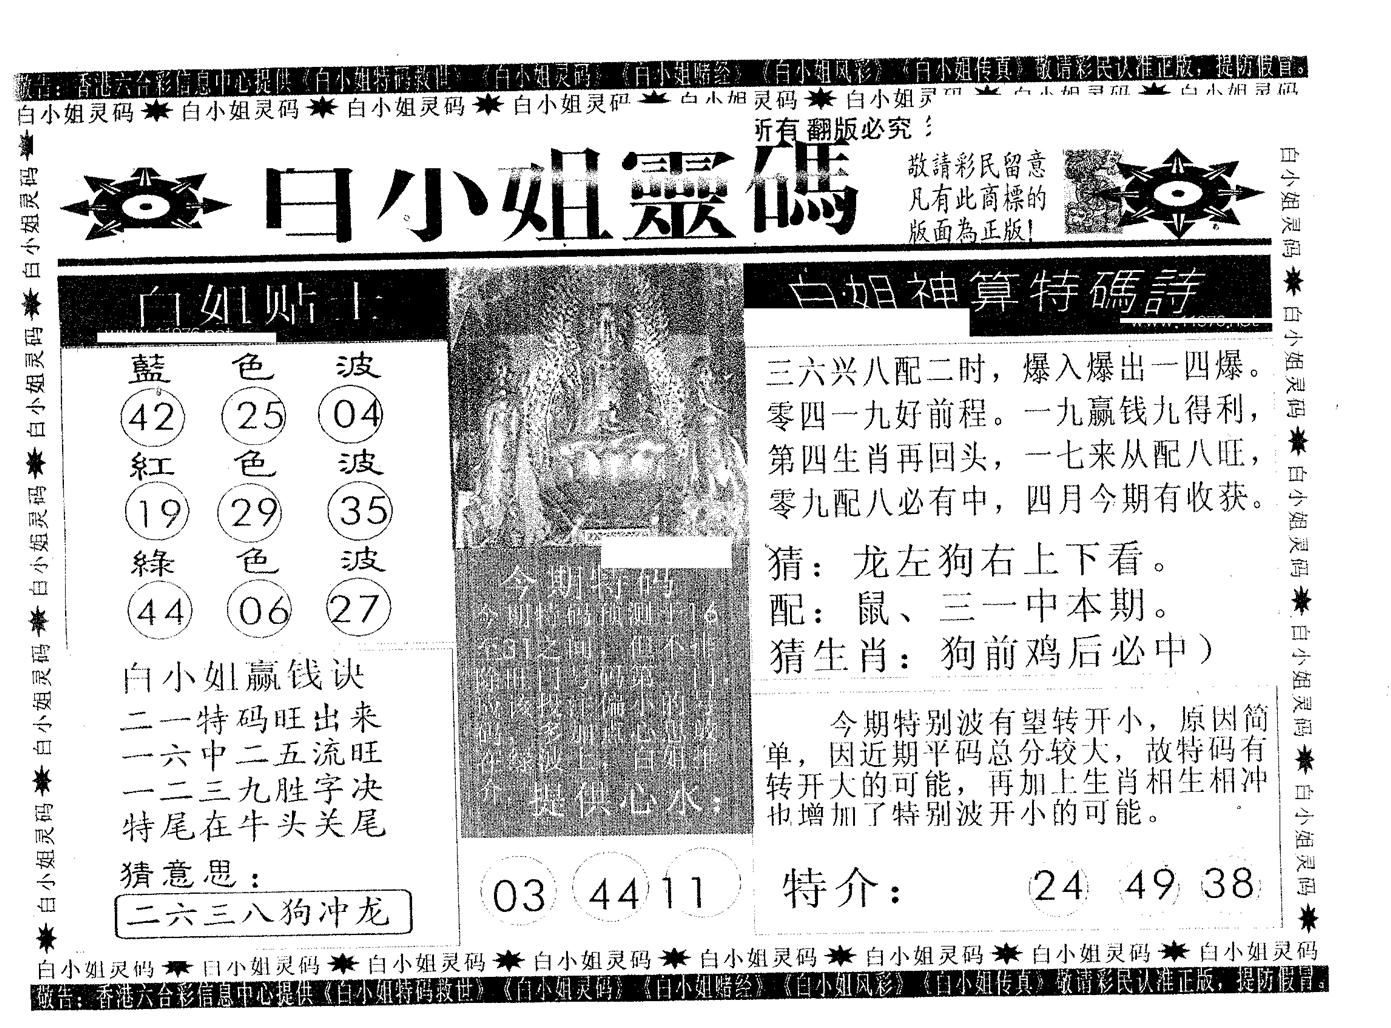 敬告：香港六合彩信息中心提供《白小姐特码救世》《白小姐灵码》《白小姐赌经》《白小姐风彩》《白小姐传真》敬请彩民认准正版，提防假冒。
白小姐灵码 白小姐灵码 白小姐灵码 白小姐灵码 白小姐灵码 白小姐灵码 白小姐灵码 白小姐灵码
所有 翻版必究
白小姐靈碼
敬請彩民留意
凡有此商標的
版面為正版!
白小姐灵码 白小姐灵码 白小姐灵码 白小姐灵码 白小姐灵码
白小姐灵码 白小姐灵码 白小姐灵码 白小姐灵码 白小姐灵码
白姐贴士
www.11976.net
藍 色 波
42 25 04
紅 色 波
19 29 35
綠 色 波
44 06 27
白小姐赢钱诀
二一特码旺出来
一六中二五流旺
一二三九胜字决
特尾在牛头关尾
猜意思：
二六三八狗冲龙
今期特码
今期特码预测于16
在31之间，但不排
除出
提供心水：
03 44 11
白姐神算特碼詩
www.11976.net
三六兴八配二时，爆入爆出一四爆。
零四一九好前程。一九赢钱九得利，
第四生肖再回头，一七来从配八旺，
零九配八必有中，四月今期有收获。
猜：龙左狗右上下看。
配：鼠、三一中本期。
猜生肖：狗前鸡后必中）
今期特别波有望转开小，原因简
单，因近期平码总分较大，故特码有
转开大的可能，再加上生肖相生相冲
也增加了特别波开小的可能。
特介： 24 49 38
白小姐灵码 白小姐灵码 白小姐灵码 白小姐灵码 白小姐灵码 白小姐灵码 白小姐灵码 白小姐灵码
敬告：香港六合彩信息中心提供《白小姐特码救世》《白小姐灵码》《白小姐赌经》《白小姐风彩》《白小姐传真》敬请彩民认准正版，提防假冒。